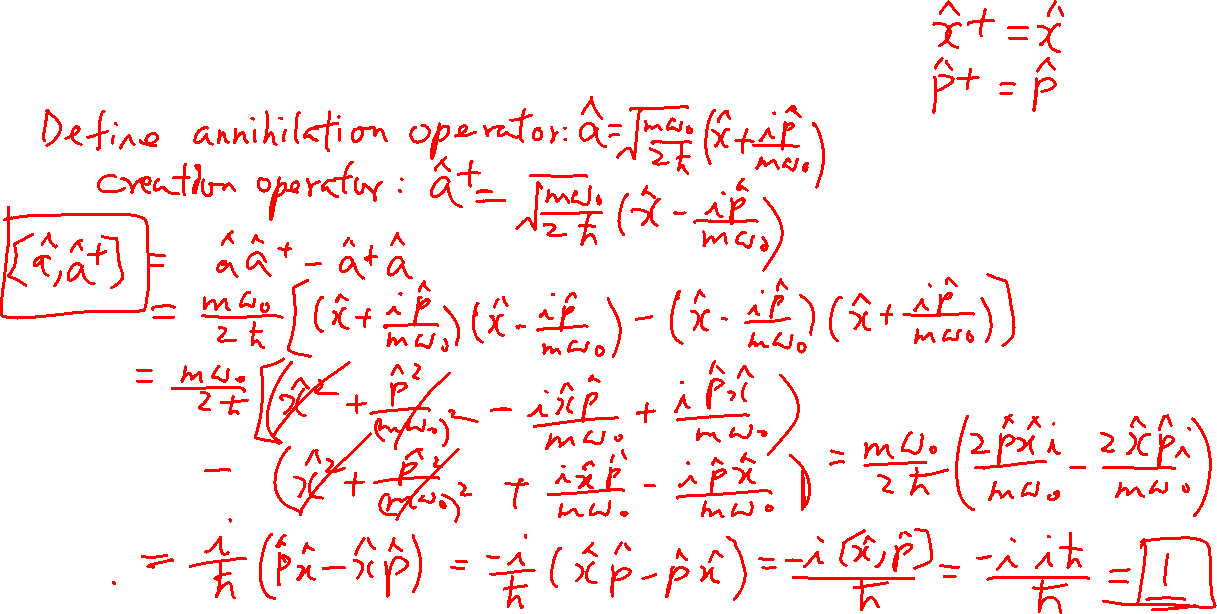 x̂⁺ = x̂
p̂⁺ = p̂
Define annihilation operator: â = √(mω₀/2ħ) (x̂ + ip̂/mω₀)
creation operator: â⁺ = √(mω₀/2ħ) (x̂ - ip̂/mω₀)
[â, â⁺] = ââ⁺ - â⁺â
= mω₀/2ħ [(x̂ + ip̂/mω₀)(x̂ - ip̂/mω₀) - (x̂ - ip̂/mω₀)(x̂ + ip̂/mω₀)]
= mω₀/2ħ [(x̂² + p̂²/(mω₀)² - ix̂p̂/mω₀ + ip̂x̂/mω₀)
- (x̂² + p̂²/(mω₀)² + ix̂p̂/mω₀ - ip̂x̂/mω₀) = mω₀/2ħ (2p̂x̂i/mω₀ - 2x̂p̂i/mω₀)
= i/ħ (p̂x̂ - x̂p̂) = -i/ħ (x̂p̂ - p̂x̂) = -i[x̂, p̂]/ħ = -i iħ/ħ = 1